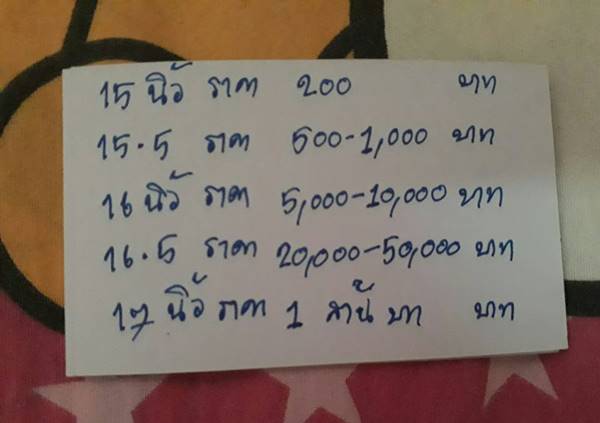 15 นิ้ว ราคา 200 บาท
15.5 ราคา 500-1,000 บาท
16 นิ้ว ราคา 5,000-10,000 บาท
16.5 ราคา 20,000-50,000 บาท
17 นิ้ว ราคา 1 ล้าน บาท บาท